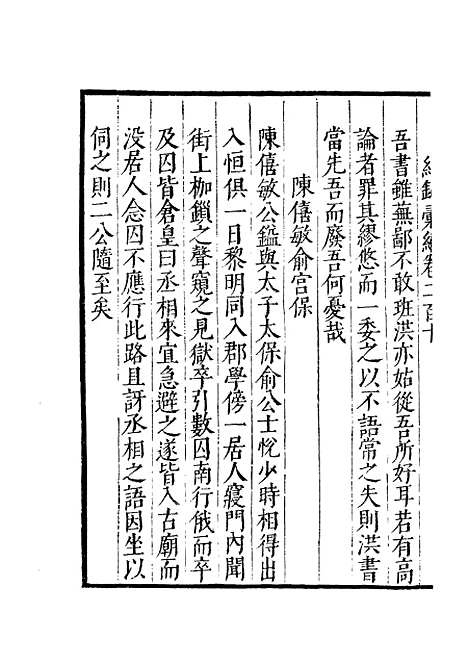 紀錄彙編卷二百十
吾書雖蕪鄙不敢班洪亦姑從吾所好耳若有高
論者罪其繆悠而一委之以不語常之失則洪書
當先吾而廢吾何憂哉
陳僖敏俞宫保
陳僖敏公鎰與太子太保俞公士悅少時相得出
入恒俱一日黎明同入郡學傍一居人寢門內聞
街上枷鎖之聲窺之見獄卒引數囚南行俄而卒
及囚皆倉皇曰丞相來宜急避之遂皆入古廟而
没居人念囚不應行此路且訝丞相之語因坐以
伺之則二公隨至矣